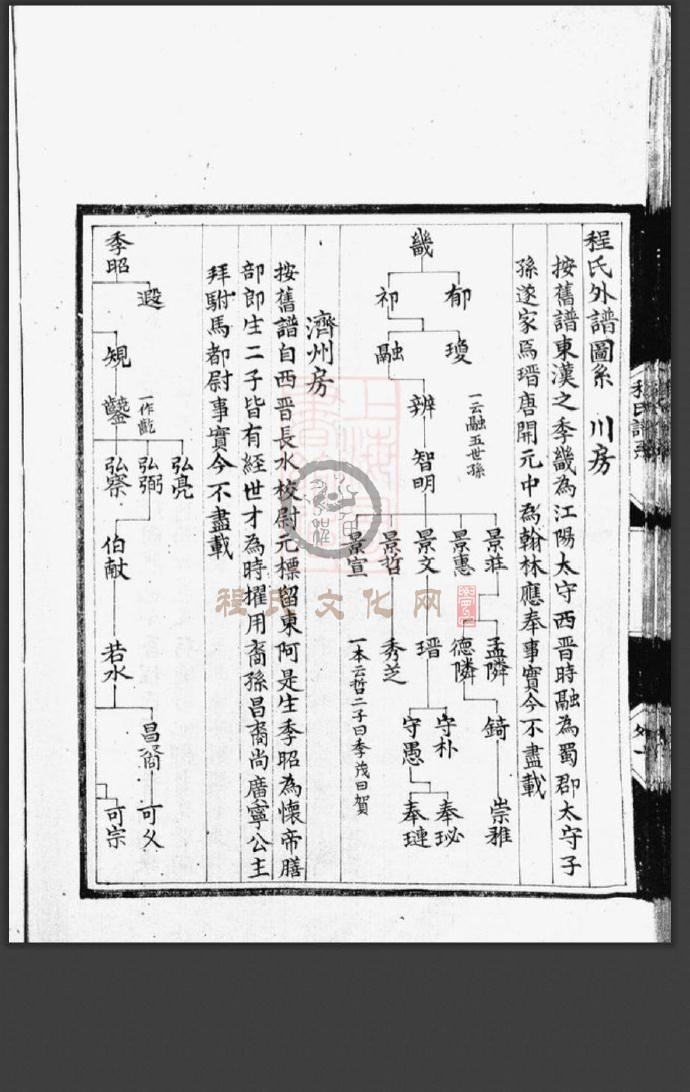 程氏外譜圖系 川房
按舊譜東漢之季畿為江陽太守西晋時融為蜀郡太守子
孫遂家焉瑨唐開元中為翰林應奉事實今不盡載
畿
郁
祁
瓊
融
辨
一云融五世孫
智明
景莊
景惠
景文
景哲
景宣
孟隣
德隣
瑨
秀芝
一本云哲二子曰季茂曰賀
錡
守朴
守愚
崇雅
奉珌
奉璉
濟州房
按舊譜自西晋長水校尉元標留東阿是生季昭為懷帝膳
部郎生二子皆有經世才為時擢用裔孫昌裔尚廣寧公主
拜駙馬都尉事實今不盡載
季昭
遐
䂓
一作
弘亮
弘弼
弘察
伯献
若水
昌裔
可久
可宗
程氏文化网